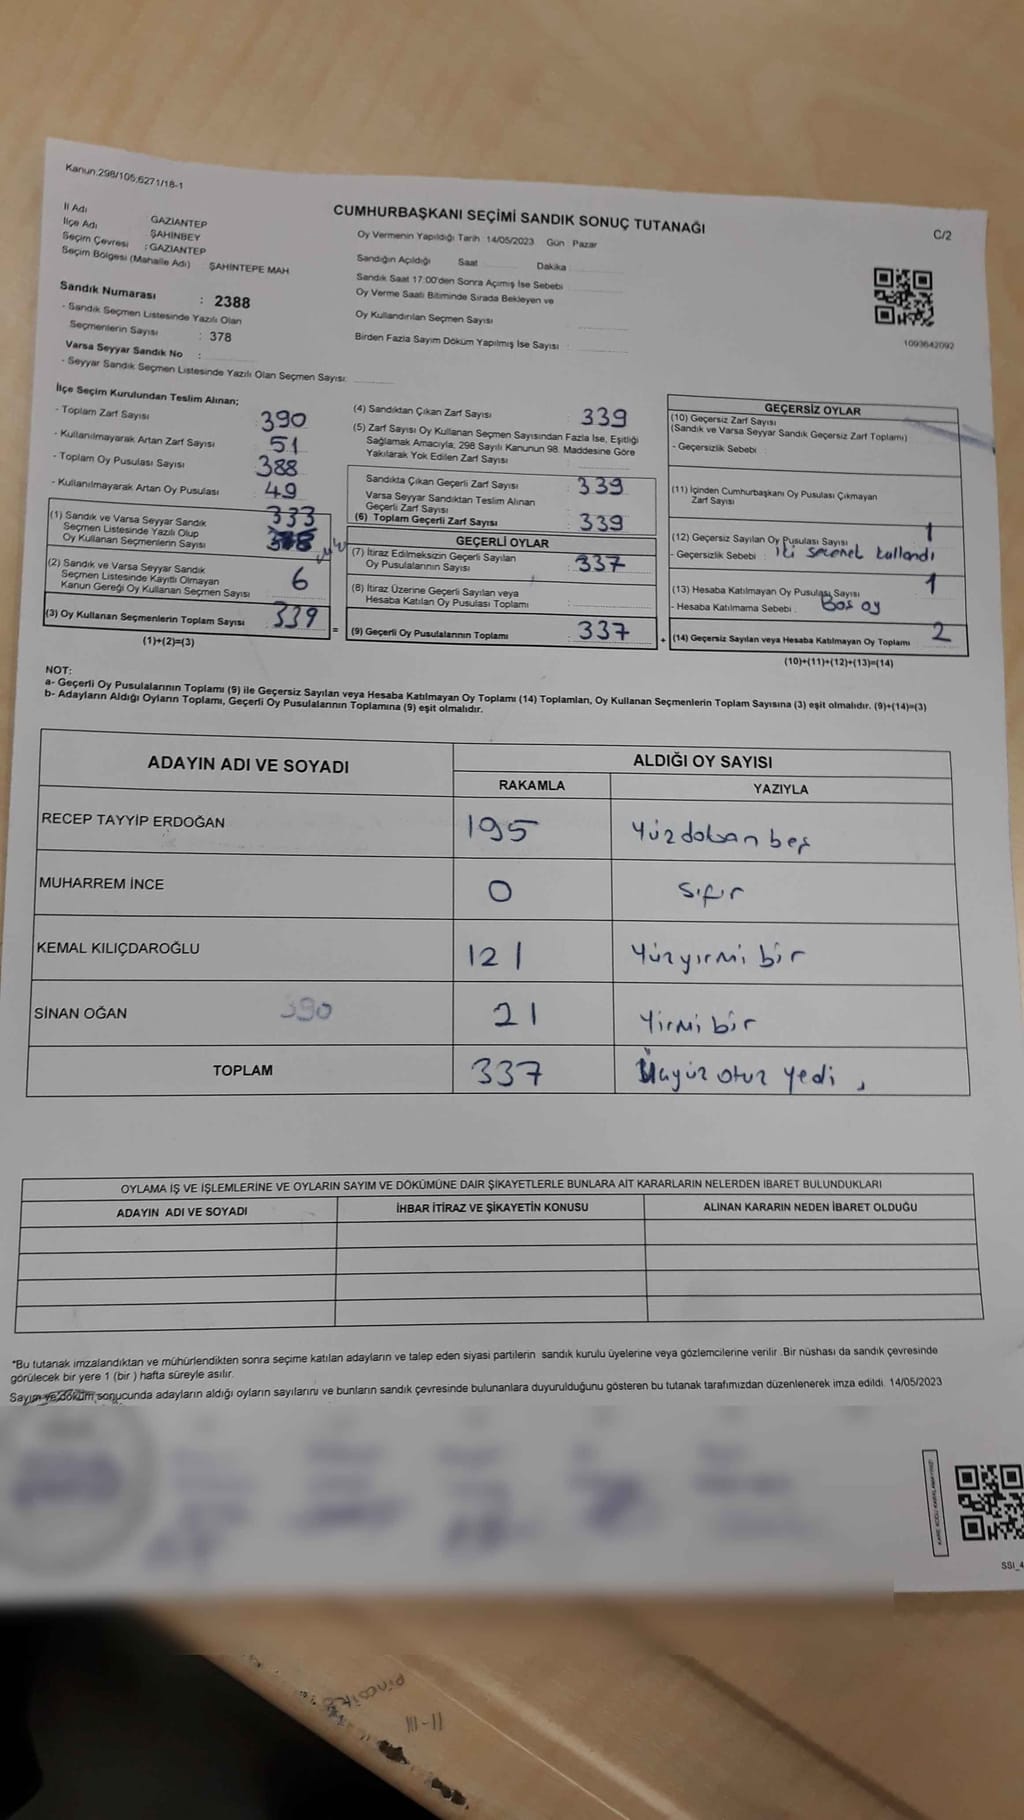 Kanun:298/105;6271/18-1
CUMHURBAŞKANI SEÇİMİ SANDIK SONUÇ TUTANAĞI
C/2
İl Adı GAZİANTEP
İlçe Adı ŞAHİNBEY
Seçim Çevresi : GAZİANTEP
Seçim Bölgesi (Mahalle Adı) ŞAHİNTEPE MAH
Sandık Numarası : 2388
- Sandık Seçmen Listesinde Yazılı Olan
Seçmenlerin Sayısı : 378
Varsa Seyyar Sandık No :
- Seyyar Sandık Seçmen Listesinde Yazılı Olan Seçmen Sayısı:
Oy Vermenin Yapıldığı Tarih :14/05/2023 Gün : Pazar
Sandığın Açıldığı Saat Dakika
Sandık Saat 17:00'den Sonra Açımış İse Sebebi
Oy Verme Saati Bitiminde Sırada Bekleyen ve
Oy Kullandırılan Seçmen Sayısı :
Birden Fazla Sayım Döküm Yapılmış İse Sayısı :
1093642092
İlçe Seçim Kurulundan Teslim Alınan;
- Toplam Zarf Sayısı 390
- Kullanılmayarak Artan Zarf Sayısı 51
- Toplam Oy Pusulası Sayısı 388
- Kullanılmayarak Artan Oy Pusulası 49
(1) Sandık ve Varsa Seyyar Sandık
Seçmen Listesinde Yazılı Olup
Oy Kullanan Seçmenlerin Sayısı 333
(2) Sandık ve Varsa Seyyar Sandık
Seçmen Listesinde Kayıtlı Olmayan
Kanun Gereği Oy Kullanan Seçmen Sayısı 6
(3) Oy Kullanan Seçmenlerin Toplam Sayısı 339
(1)+(2)=(3)
(4) Sandıktan Çıkan Zarf Sayısı 339
(5) Zarf Sayısı Oy Kullanan Seçmen Sayısından Fazla İse, Eşitliği
Sağlamak Amacıyla, 298 Sayılı Kanunun 98. Maddesine Göre
Yakılarak Yok Edilen Zarf Sayısı :
Sandıkta Çıkan Geçerli Zarf Sayısı : 339
Varsa Seyyar Sandıktan Teslim Alınan
Geçerli Zarf Sayısı :
(6) Toplam Geçerli Zarf Sayısı 339
GEÇERLİ OYLAR
(7) İtiraz Edilmeksizin Geçerli Sayılan
Oy Pusulalarının Sayısı : 337
(8) İtiraz Üzerine Geçerli Sayılan veya
Hesaba Katılan Oy Pusulası Toplamı :
= (9) Geçerli Oy Pusulalarının Toplamı : 337 +
GEÇERSİZ OYLAR
(10) Geçersiz Zarf Sayısı
(Sandık ve Varsa Seyyar Sandık Geçersiz Zarf Toplamı)
- Geçersizlik Sebebi :
(11) İçinden Cumhurbaşkanı Oy Pusulası Çıkmayan
Zarf Sayısı
(12) Geçersiz Sayılan Oy Pusulası Sayısı 1
- Geçersizlik Sebebi : iki seçenek kullandı
(13) Hesaba Katılmayan Oy Pusulası Sayısı 1
- Hesaba Katılmama Sebebi : Boş oy
(14) Geçersiz Sayılan veya Hesaba Katılmayan Oy Toplamı 2
(10)+(11)+(12)+(13)=(14)
NOT:
a- Geçerli Oy Pusulalarının Toplamı (9) ile Geçersiz Sayılan veya Hesaba Katılmayan Oy Toplamı (14) Toplamları, Oy Kullanan Seçmenlerin Toplam Sayısına (3) eşit olmalıdır. (9)+(14)=(3)
b- Adayların Aldığı Oyların Toplamı, Geçerli Oy Pusulalarının Toplamına (9) eşit olmalıdır.
ADAYIN ADI VE SOYADI
ALDIĞI OY SAYISI
RAKAMLA YAZIYLA
RECEP TAYYİP ERDOĞAN 195 Yüzdoksan beş
MUHARREM İNCE 0 Sıfır
KEMAL KILIÇDAROĞLU 121 Yüzyirmi bir
SİNAN OĞAN 390 21 Yirmi bir
TOPLAM 337 Üçyüz otuz yedi
OYLAMA İŞ VE İŞLEMLERİNE VE OYLARIN SAYIM VE DÖKÜMÜNE DAİR ŞİKAYETLERLE BUNLARA AİT KARARLARIN NELERDEN İBARET BULUNDUKLARI
ADAYIN ADI VE SOYADI İHBAR İTİRAZ VE ŞİKAYETİN KONUSU ALINAN KARARIN NEDEN İBARET OLDUĞU
*Bu tutanak imzalandıktan ve mühürlendikten sonra seçime katılan adayların ve talep eden siyasi partilerin sandık kurulu üyelerine veya gözlemcilerine verilir .Bir nüshası da sandık çevresinde
görülecek bir yere 1 (bir ) hafta süreyle asılır.
Sayım ve döküm sonucunda adayların aldığı oyların sayılarını ve bunların sandık çevresinde bulunanlara duyurulduğunu gösteren bu tutanak tarafımızdan düzenlenerek imza edildi. 14/05/2023
SSI_4
III-II